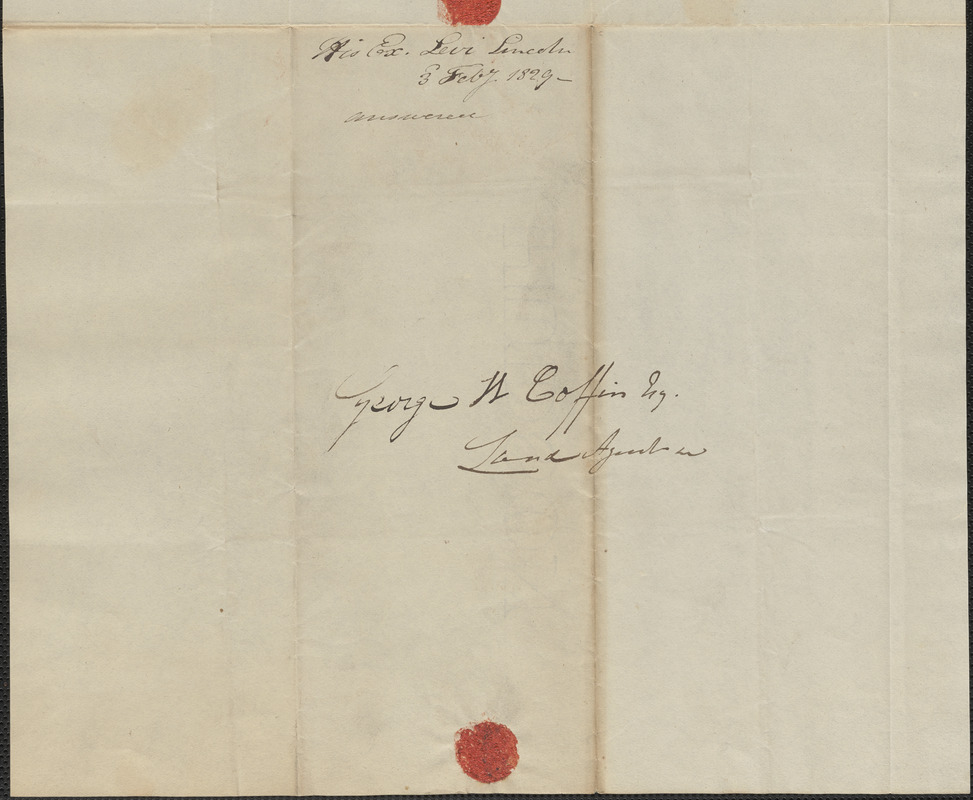 His Ex. Levi Lincoln
3 Feby. 1829 –
answered
George W Coffin Esq.
Land Agent &c